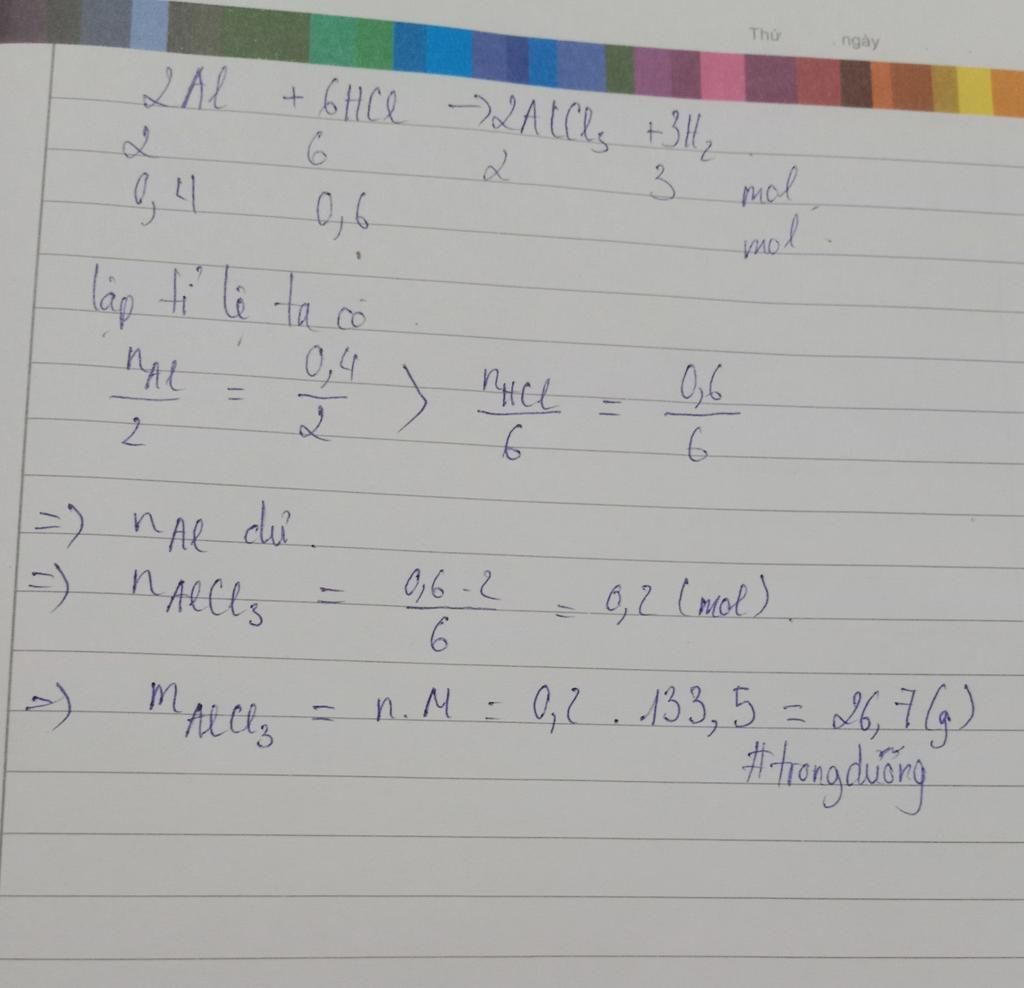 Thứ ngày
2Al + 6HCl → 2AlCl₃ + 3H₂
2 6 2 3 mol
0,4 0,6 mol
lập tỉ lệ ta có
nAl/2 = 0,4/2 > nHCl/6 = 0,6/6
=> nAl dư.
=> nAlCl₃ = 0,6.2/6 = 0,2 (mol).
=> mAlCl₃ = n.M = 0,2 . 133,5 = 26,7 (g)
#trongdưỡng